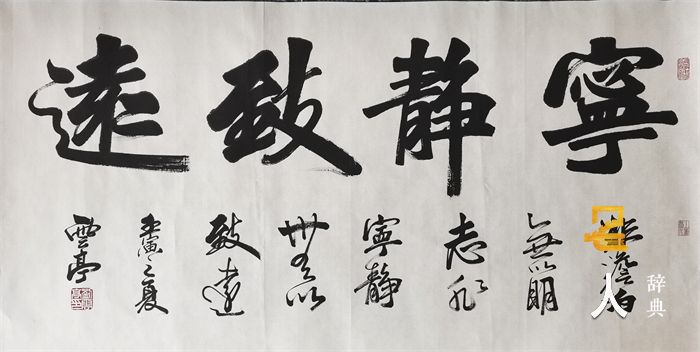 寧靜致遠
非澹泊
無以明
志非
寧靜
無以
致遠
壬寅之夏
雲亭
辞典